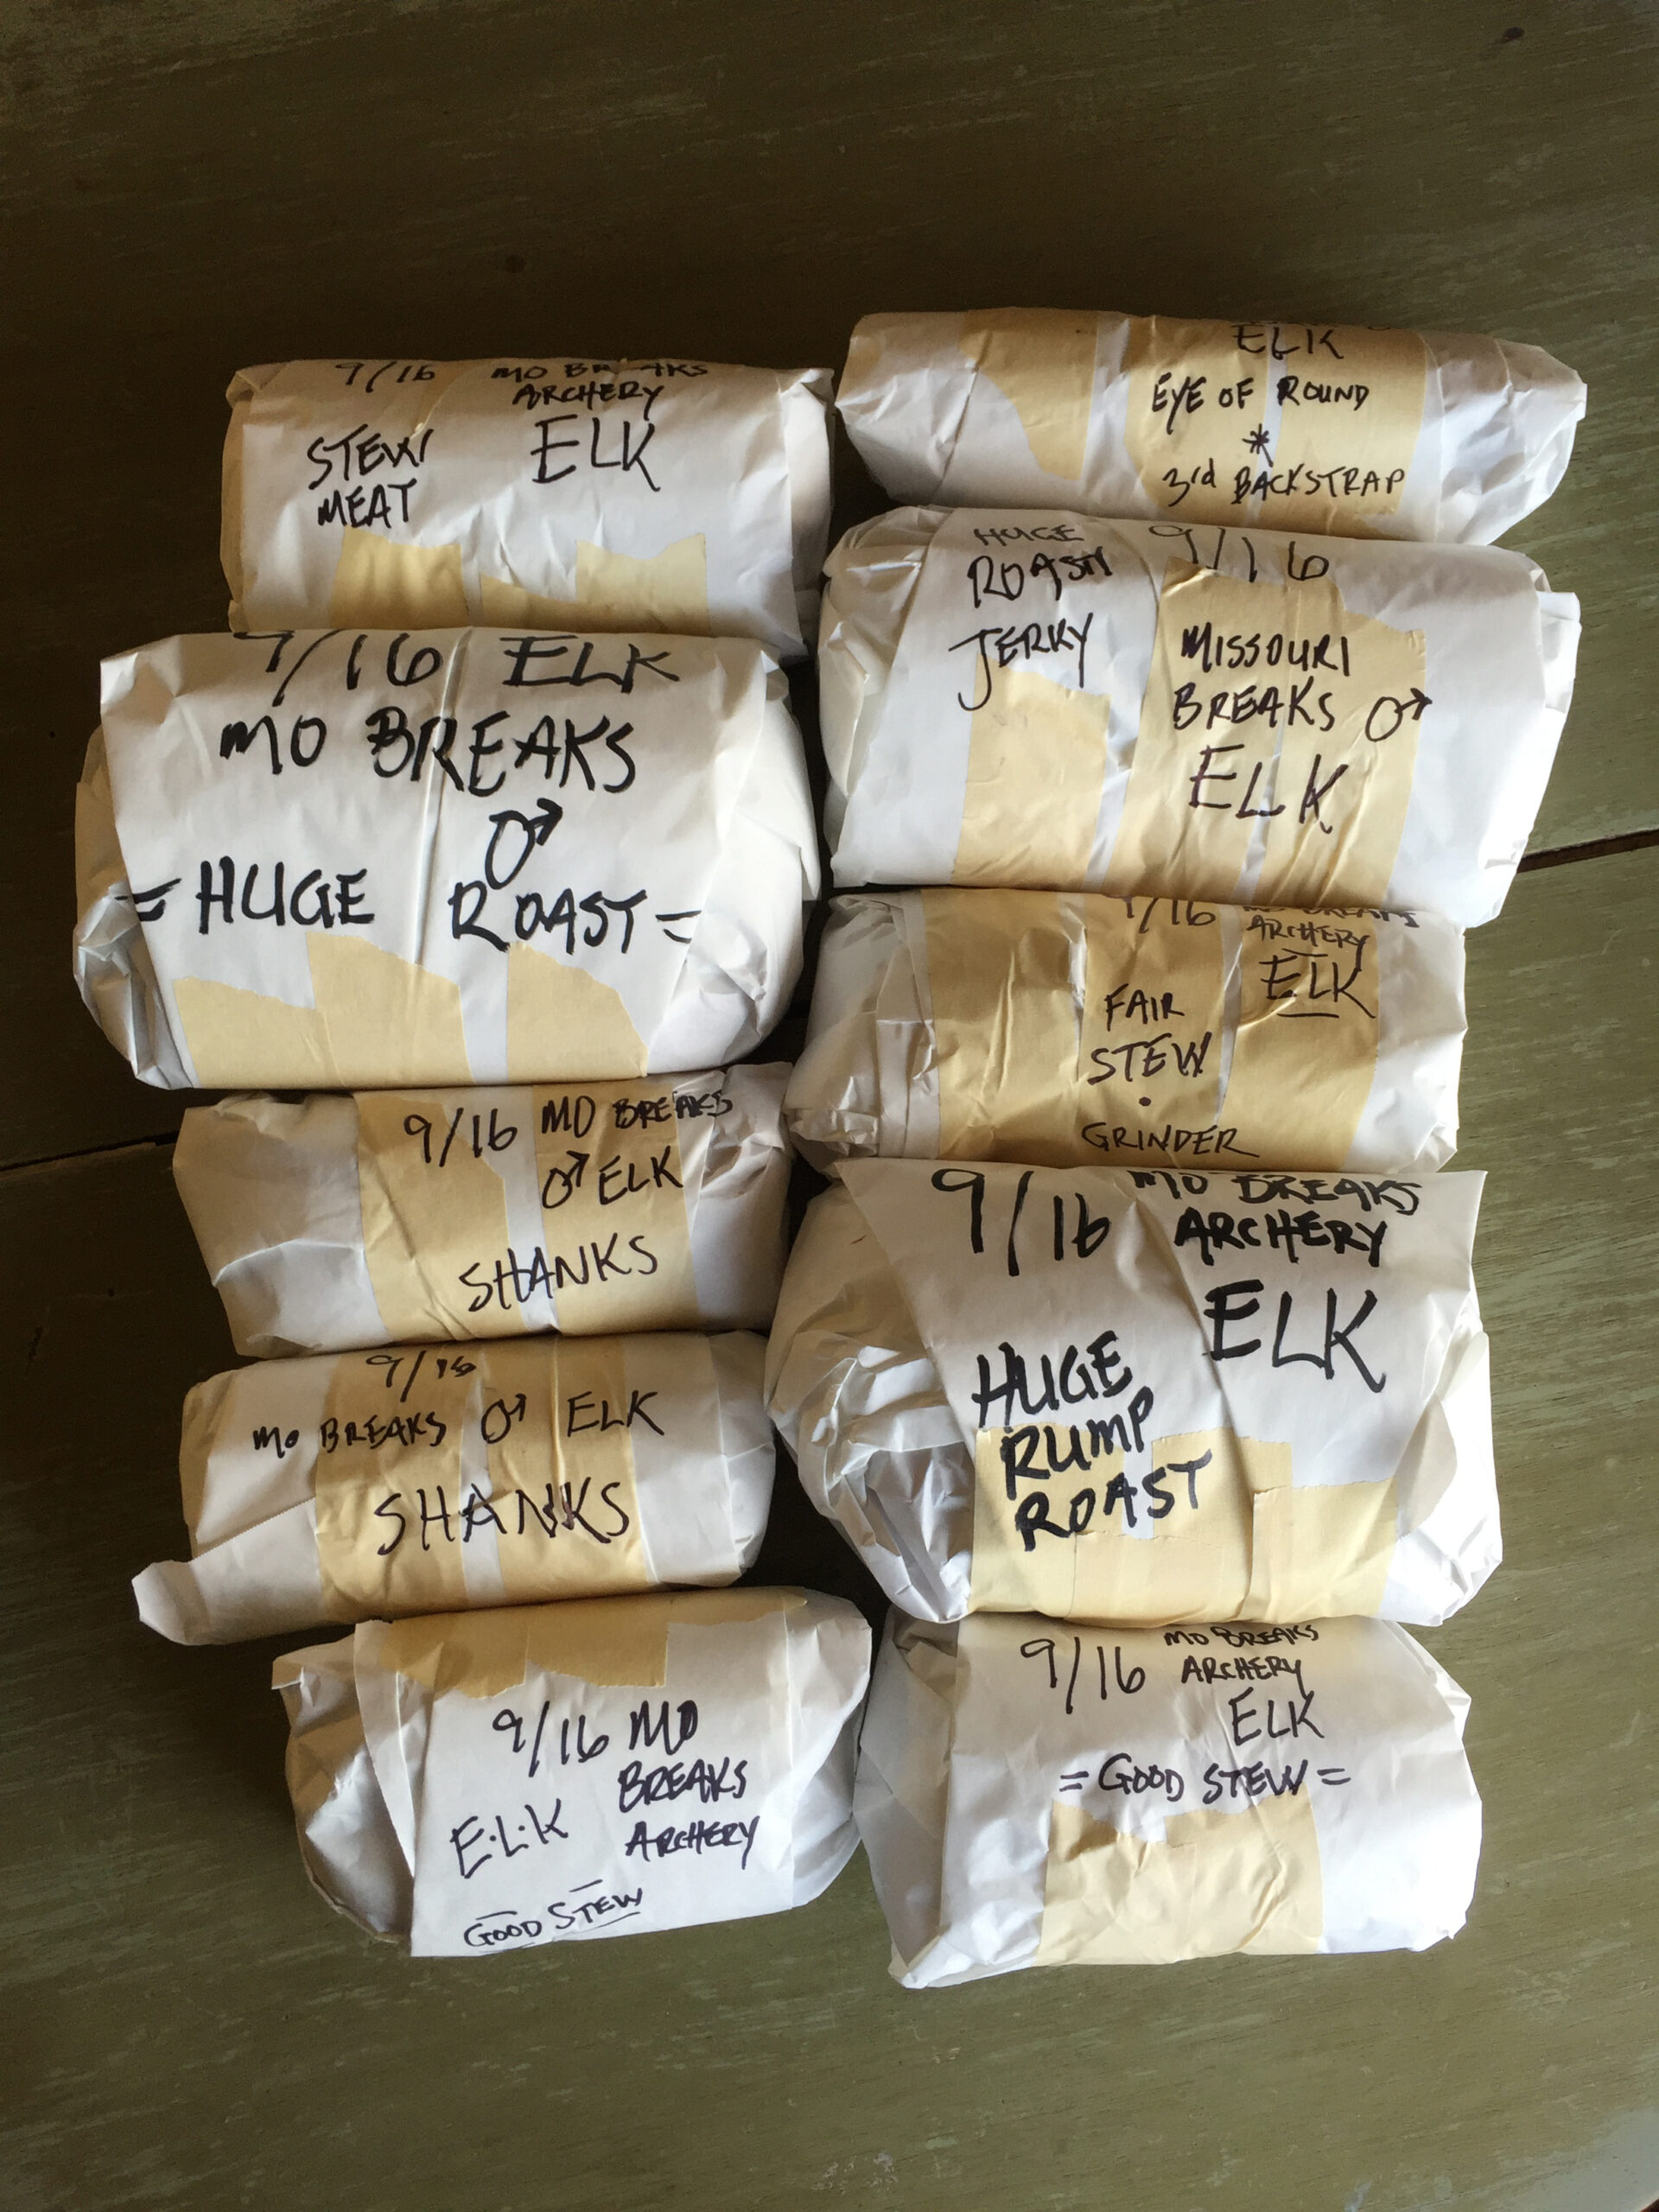 9/16 MO BREAKS
ARCHERY
STEW ELK
MEAT
9/16 ELK
MO BREAKS
♂
= HUGE ROAST =
9/16 MO BREAKS
♂ ELK
SHANKS
9/16
MO BREAKS ♂ ELK
SHANKS
9/16 MO
BREAKS
E·L·K ARCHERY
GOOD STEW
ELK
EYE OF ROUND
*
3rd BACKSTRAP
HUGE 9/16
ROAST/
JERKY
MISSOURI
BREAKS ♂
ELK
9/16 MO BREAKS
ARCHERY
ELK
FAIR
STEW
·
GRINDER
9/16 MO BREAKS
ARCHERY
ELK
HUGE
RUMP
ROAST
9/16 MO BREAKS
ARCHERY
ELK
= GOOD STEW =